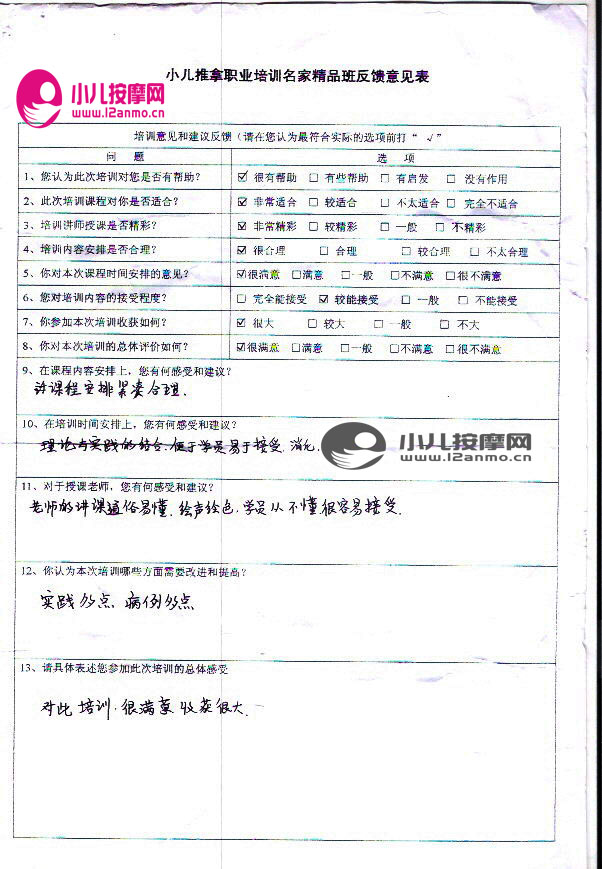 小儿推拿职业培训名家精品班反馈意见表
小儿按摩网
www.12anmo.cn
培训意见和建议反馈（请在您认为最符合实际的选项前打“ √”
问 题 选 项
1、您认为此次培训对您是否有帮助？ ☑ 很有帮助 □ 有些帮助 □ 有启发 □ 没有作用
2、此次培训课程对你是否适合？ ☑ 非常适合 □ 较适合 □ 不太适合 □ 完全不适合
3、培训讲师授课是否精彩？ ☑ 非常精彩 □ 较精彩 □ 一般 □ 不精彩
4、培训内容安排是否合理？ ☑ 很合理 □ 合理 □ 较合理 □ 不太合理
5、你对本次课程时间安排的意见？ ☑很满意 □满意 □一般 □不满意 □很不满意
6、您对培训内容的接受程度？ □ 完全能接受 ☑ 较能接受 □ 一般 □ 不能接受
7、你参加本次培训收获如何？ ☑ 很大 □ 较大 □ 一般 □ 不大
8、你对本次培训的总体评价如何？ ☑很满意 □满意 □一般 □不满意 □很不满意
9、在课程内容安排上，您有何感受和建议？
讲课程安排紧凑合理.
10、在培训时间安排上，您有何感受和建议？
理论与实践的结合.便于学员易于接受.消化.
小儿按摩网
www.12anmo.cn
11、对于授课老师，您有何感受和建议？
老师的讲课通俗易懂.绘声绘色.学员从不懂很容易接受.
12、你认为本次培训哪些方面需要改进和提高？
实践多点.病例多点
13、请具体表述您参加此次培训的总体感受
对此培训.很满意 收获很大.